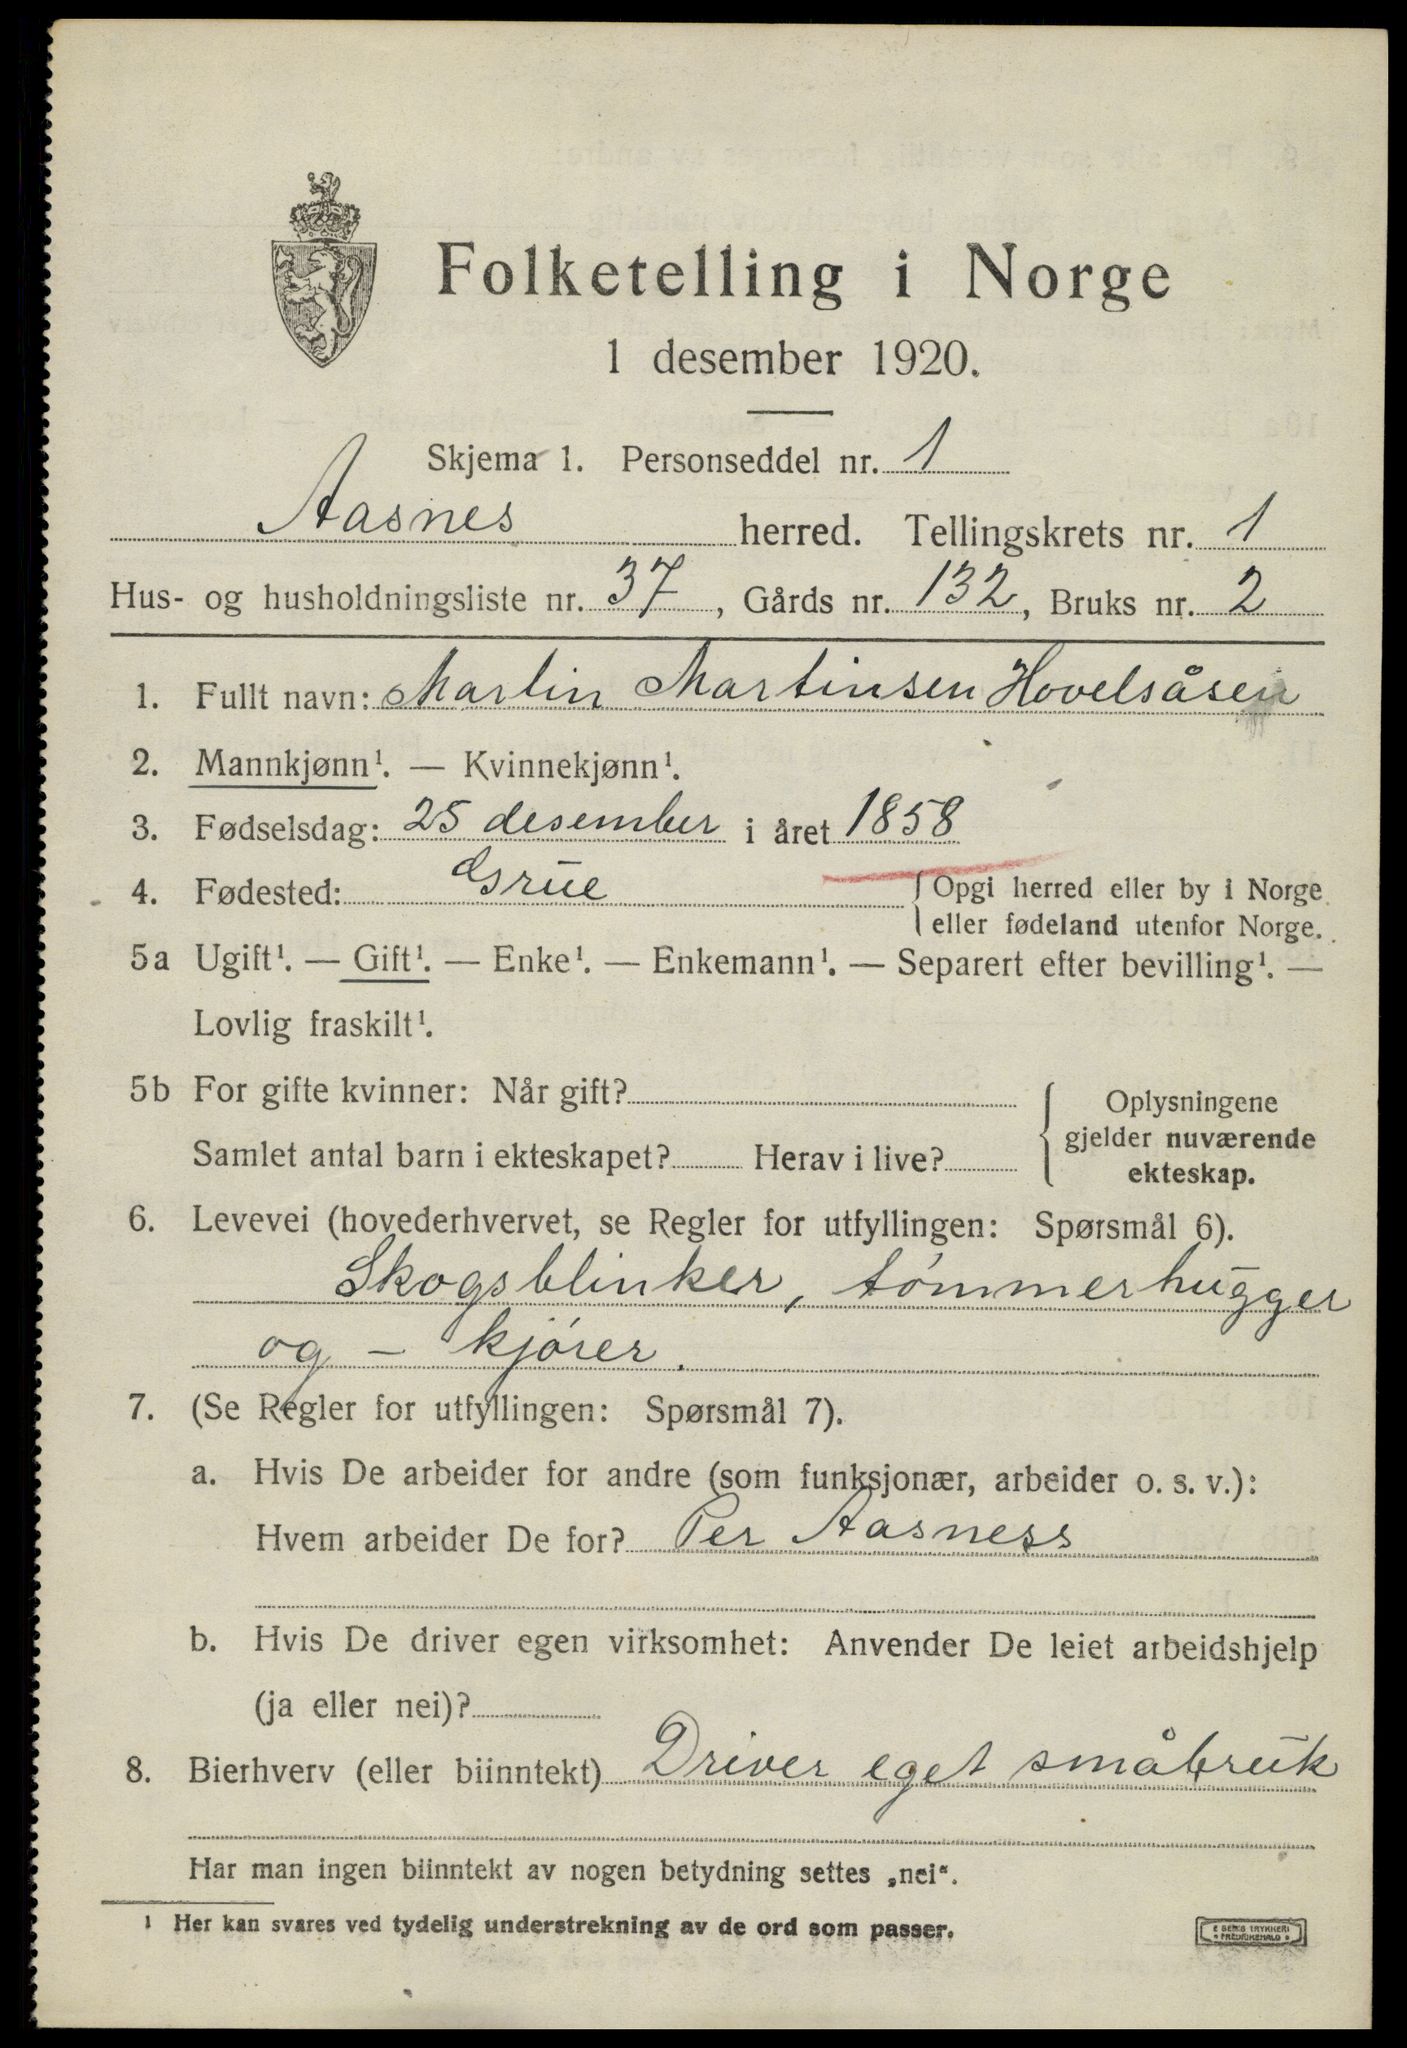 Folketelling i Norge
1 desember 1920.
Skjema 1. Personseddel nr. 1
Aasnes herred. Tellingskrets nr. 1
Hus- og husholdningsliste nr. 37, Gårds nr. 132, Bruks nr. 2
1. Fullt navn: Martin Martinsen Hovelsåsen
2. Mannkjønn¹. — Kvinnekjønn¹.
3. Fødselsdag: 25 desember i året 1858
4. Fødested: Grue { Opgi herred eller by i Norge
eller fødeland utenfor Norge.
5a Ugift¹. — Gift¹. — Enke¹. — Enkemann¹. — Separert efter bevilling¹. —
Lovlig fraskilt¹.
5b For gifte kvinner: Når gift?
Samlet antal barn i ekteskapet? Herav i live?
Oplysningene
gjelder nuværende
ekteskap.
6. Levevei (hovederhvervet, se Regler for utfyllingen: Spørsmål 6).
Skogsblinker, tømmerhugger
og - kjører.
7. (Se Regler for utfyllingen: Spørsmål 7).
a. Hvis De arbeider for andre (som funksjonær, arbeider o. s. v.):
Hvem arbeider De for? Per Aasness
b. Hvis De driver egen virksomhet: Anvender De leiet arbeidshjelp
(ja eller nei)?
8. Bierhverv (eller biinntekt) Driver eget småbruk
Har man ingen biinntekt av nogen betydning settes „nei“.
¹ Her kan svares ved tydelig understrekning av de ord som passer.
E SEMS TRYKKERI
FREDRIKSHALD